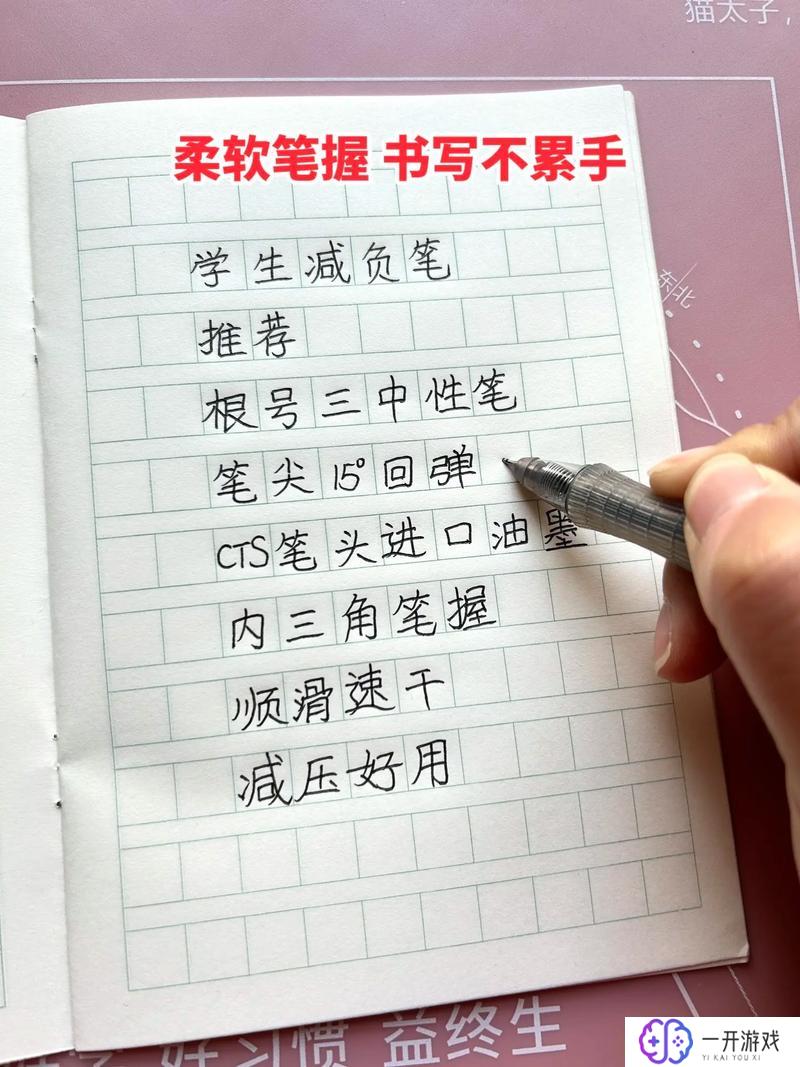 猫太子,
柔软笔握 书写不累手
学生减负笔
东北
推荐
根号三中性笔
笔尖15°回弹
CTS笔头进口油墨
内三角笔握
顺滑速干
减压好用
好习惯 益终生
一开游戏
YI KAI YOU XI